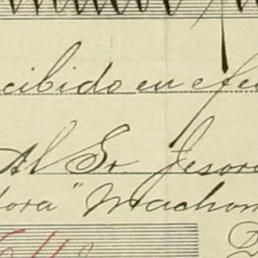 cibido en efe
Al Sr. Tesor
dora" Machon